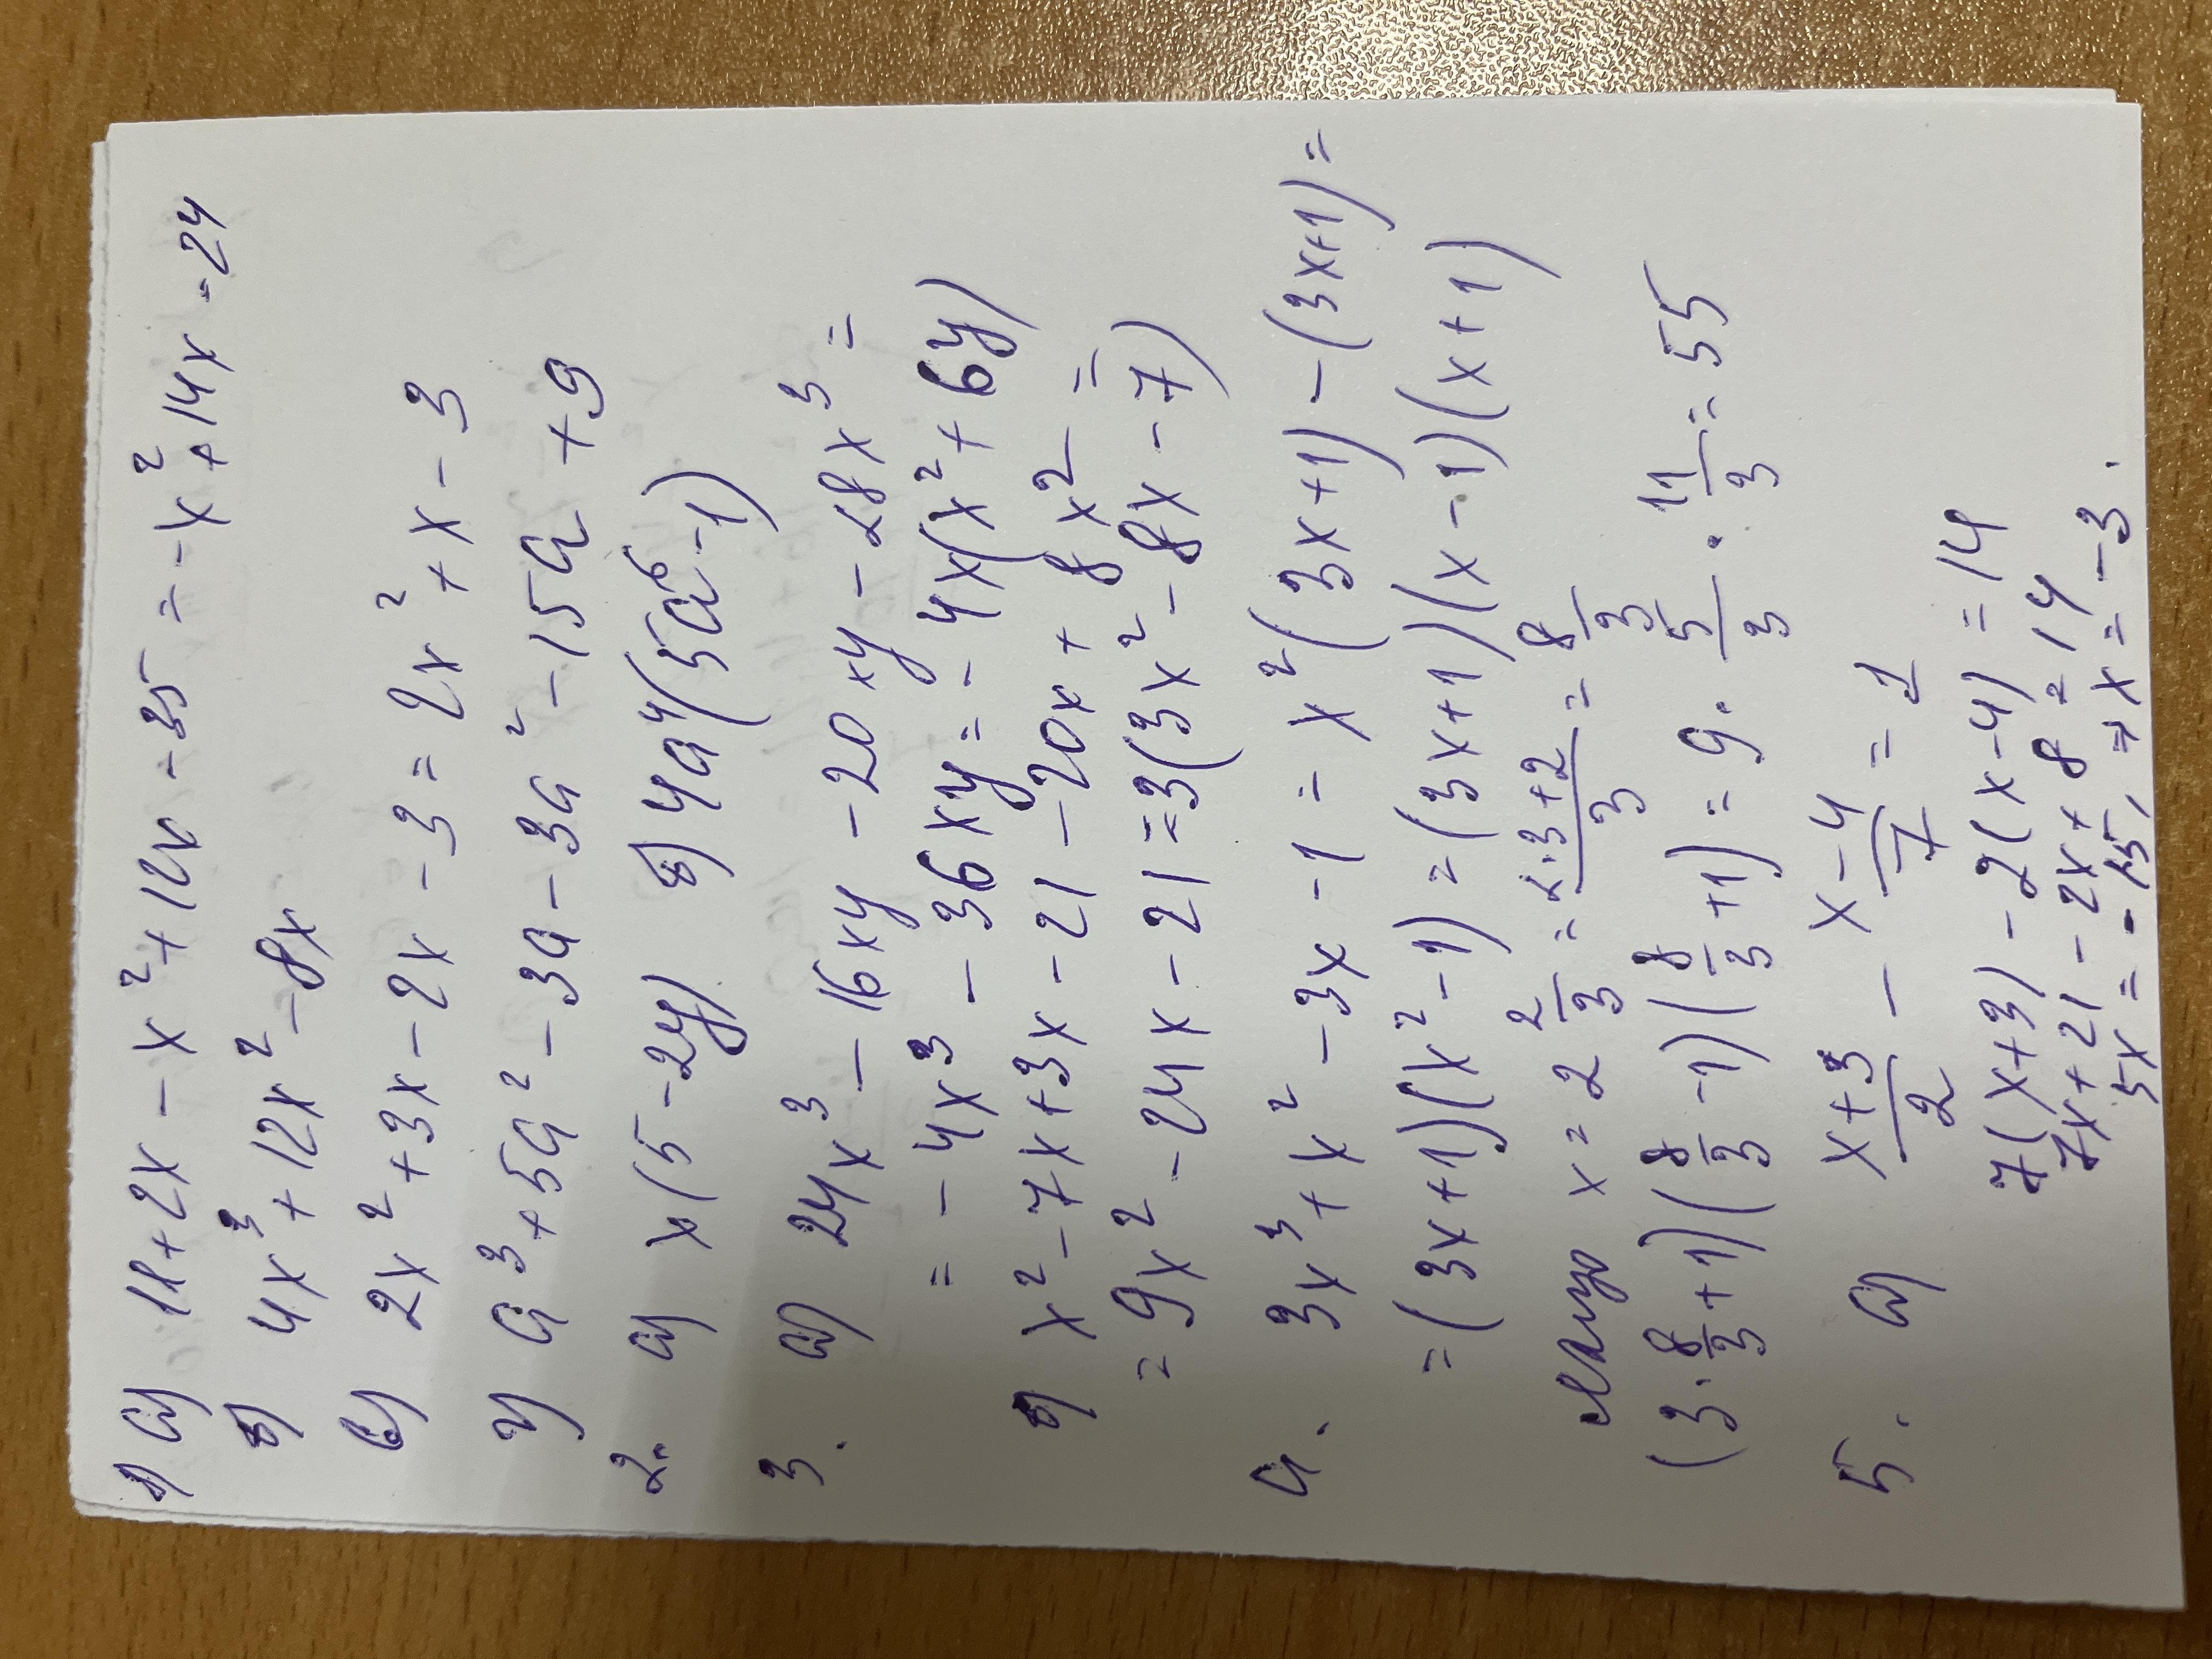 1) а) 11+2x-x²+12x-35=-x²+14x-24
б) 4x³+12x²-8x
в) 2x²+3x-2x-3=2x²+x-3
г) a³+5a²-3a-3a²-15a+9
2. а) x(5-2y) б) 4a⁴(5a⁶-1)
3. а) 24x³-16xy-20xy-28x³=
=-4x³-36xy=-4x(x²+6y)
б) x²-7x+3x-21-20x+8x²=
=9x²-24x-21=3(3x²-8x-7)
4. 3x³+x²-3x-1=x²(3x+1)-(3x+1)=
=(3x+1)(x²-1)=(3x+1)(x-1)(x+1)
x=2 2/3=2·3+2/3=8/3
(3·8/3+1)(8/3-1)(8/3+1)=9·5/3·11/3=55
5. а) x+3/2 - x-4/7=1
7(x+3)-2(x-4)=14
7x+21-2x+8=14
5x=-15, => x=-3.